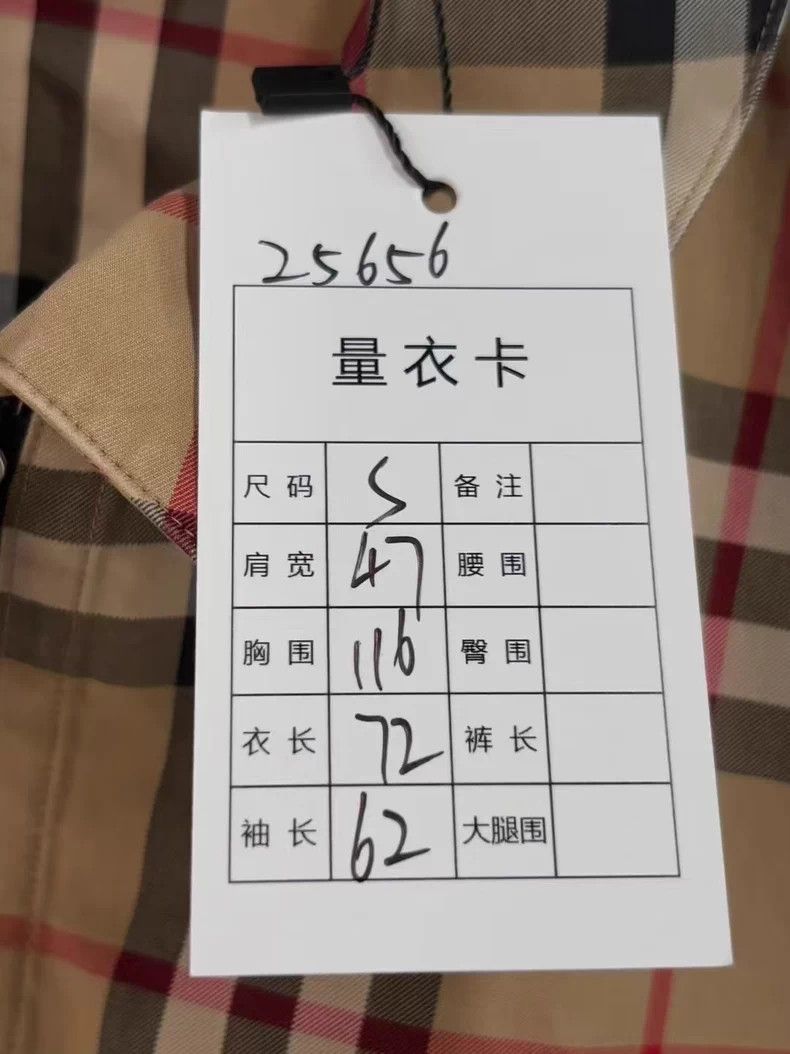 25656
量衣卡
尺码 S 备注
肩宽 47 腰围
胸围 116 臀围
衣长 72 裤长
袖长 62 大腿围